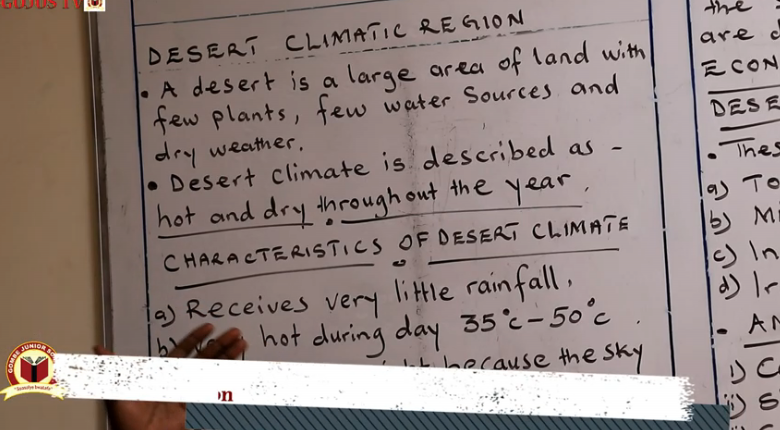 DESERT CLIMATIC REGION
• A desert is a large area of land with
few plants, few water Sources and
dry weather.
• Desert climate is described as -
hot and dry throughout the year.
CHARACTERISTICS OF DESERT CLIMATE
a) Receives very little rainfall.
b) hot during day 35°c - 50°c.
because the sky
the
are
ECON
DESE
• Thes
a) To
b) Mi
c) In
d) Ir
• AN
i) C
ii) S
TV
GOMBE JUNIOR
on